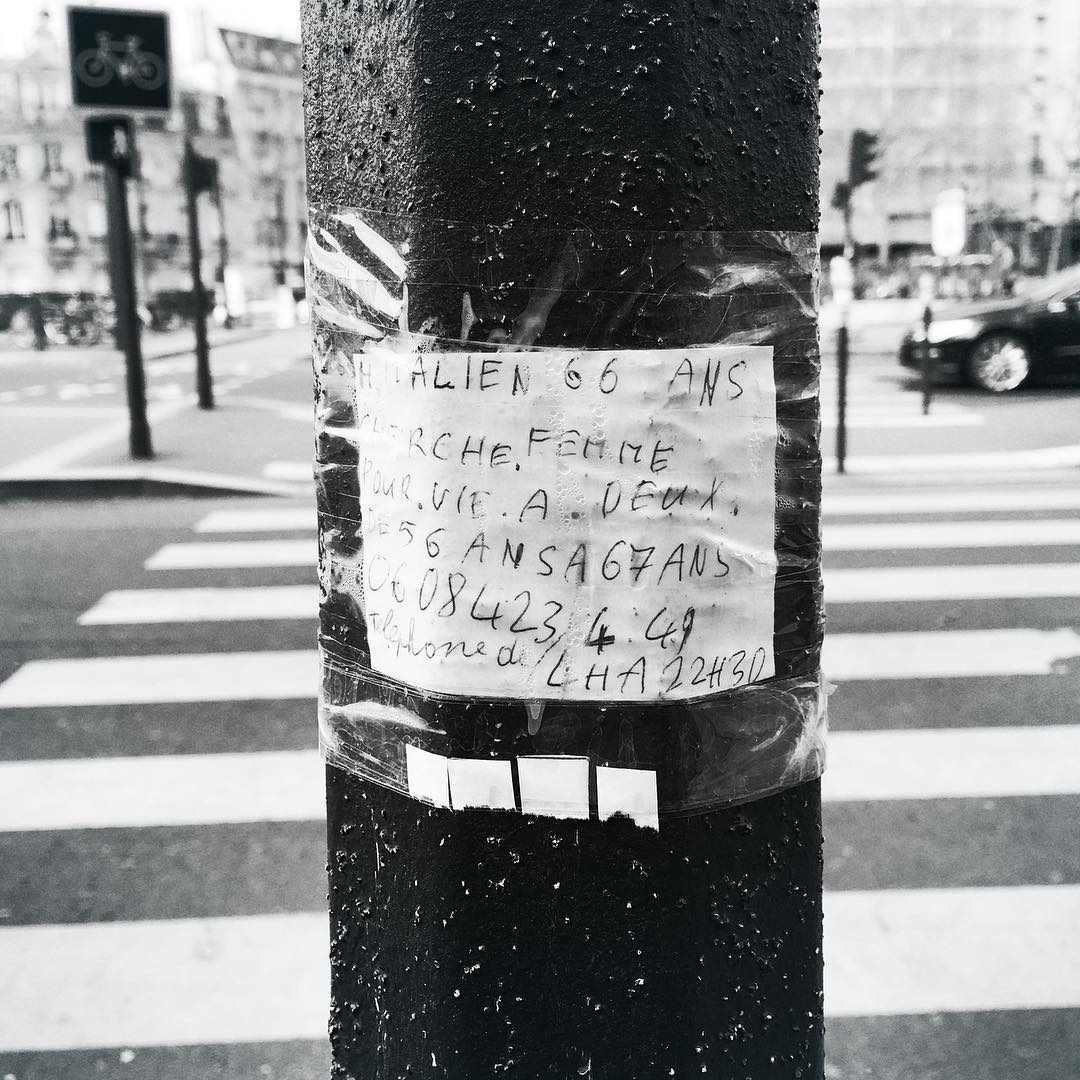 H. ITALIEN 66 ANS
CHERCHE. FEMME
POUR. VIE. A DEUX.
DE 56 ANS A 67 ANS
06 08 42 23 4 49
Téléphone de 4H A 22H30